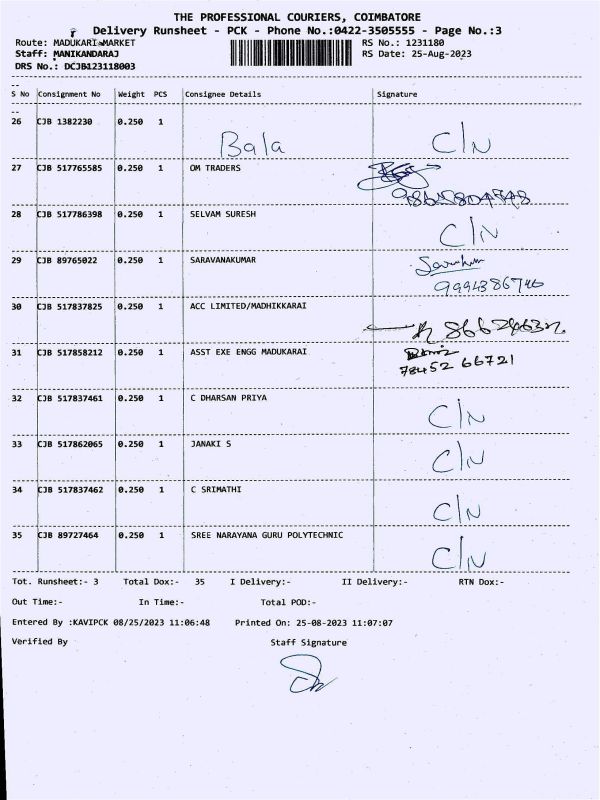 THE PROFESSIONAL COURIERS, COIMBATORE
Delivery Runsheet - PCK - Phone No.:0422-3505555 - Page No.:3
Route: MADUKARI MARKET RS No.: 1231180
Staff: MANIKANDARAJ RS Date: 25-Aug-2023
DRS No.: DCJB123118003
S No Consignment No Weight PCS Consignee Details Signature
26 CJB 1382230 0.250 1 Bala C/N
27 CJB 517765585 0.250 1 OM TRADERS
28 CJB 517786398 0.250 1 SELVAM SURESH C/N
29 CJB 89765022 0.250 1 SARAVANAKUMAR
9994386746
30 CJB 517837825 0.250 1 ACC LIMITED/MADHIKKARAI
31 CJB 517858212 0.250 1 ASST EXE ENGG MADUKARAI
78452 66721
32 CJB 517837461 0.250 1 C DHARSAN PRIYA C/N
33 CJB 517862065 0.250 1 JANAKI S C/N
34 CJB 517837462 0.250 1 C SRIMATHI C/N
35 CJB 89727464 0.250 1 SREE NARAYANA GURU POLYTECHNIC C/N
Tot. Runsheet:- 3 Total Dox:- 35 I Delivery:- II Delivery:- RTN Dox:-
Out Time:- In Time:- Total POD:-
Entered By :KAVIPCK 08/25/2023 11:06:48 Printed On: 25-08-2023 11:07:07
Verified By Staff Signature